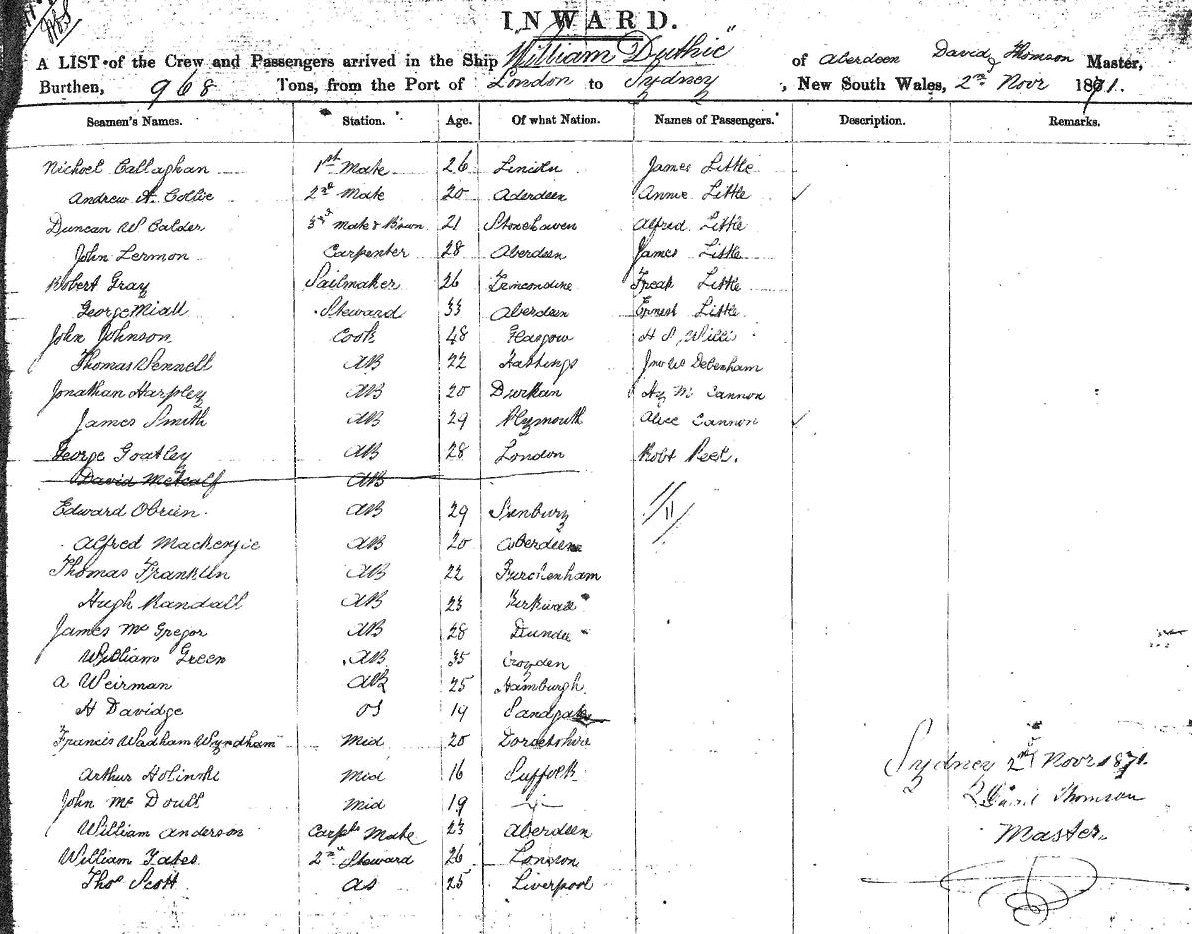 INWARD.
A LIST of the Crew and Passengers arrived in the Ship "William Duthie" of Aberdeen David Thomson Master,
Burthen, 968 Tons, from the Port of London to Sydney, New South Wales, 2nd Novr 1871.
Seamen's Names. Station. Age. Of what Nation. Names of Passengers. Description. Remarks.
Nichoel Callaghan 1st Mate 26 Lincoln James Little
Andrew A. Collie 2nd Mate 20 Aberdeen Annie Little
Duncan W Calder 3rd Mate & Bosun 21 Stonehaven Alfred Little
John Lermon Carpenter 28 Aberdeen James Little
Robert Gray Sailmaker 26 Little
George Miall Steward 33 Aberdeen Ernest Little
John Johnson Cook 48 Glasgow H S Willis
Thomas Vennell AB 22 Hastings Jno W Debenham
Jonathan Harpley AB 20 Durham Hy M Cannon
James Smith AB 29 Plymouth Alice Cannon
George Goatley AB 28 London Robt Peek.
David Metcalf AB
Edward Obrien AB 29 Sunbury 11
Alfred Mackenzie AB 20 Aberdeen
Thomas Franklin AB 22
Hugh Randall AB 23 Kirkwall
James McGregor AB 28 Dundee
William Green AB 35 Croyden
A Weirman AB 25 Hamburgh
H Davidge OS 19 Sandgate
Francis Wadham Wyndham Mid 20 Dorsetshire
Arthur Holinski Mid 16 Suffolk
John McDoull Mid 19
William Anderson Carpts Mate 23 Aberdeen
William Yates 2nd Steward 26 London
Thos Scott as 25 Liverpool
Sydney 2nd Novr 1871.
David Thomson
Master